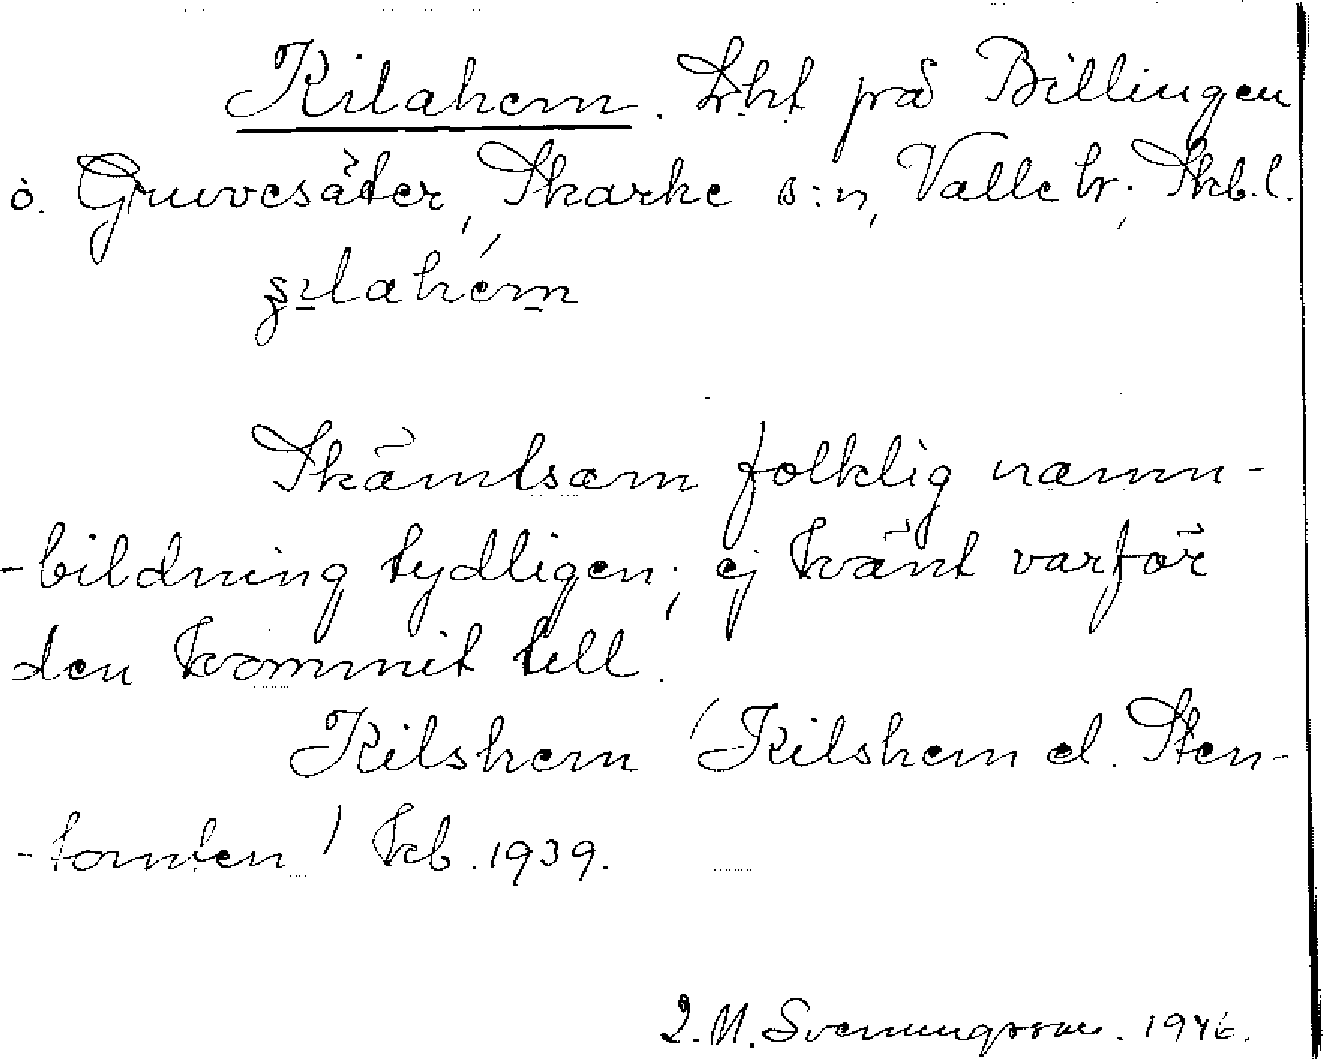 Kilahem. Lht på Billingen
ö. Gruvesäter, Skarke s:n, Valle hr; Skb.l.
Skämtsam folklig namn-
-bildning tydligen; ej känt varför
den kommit till.
Kilshem (Kilshem el. Sten-
-tomten) kb. 1939.
Svenungsson. 1946.